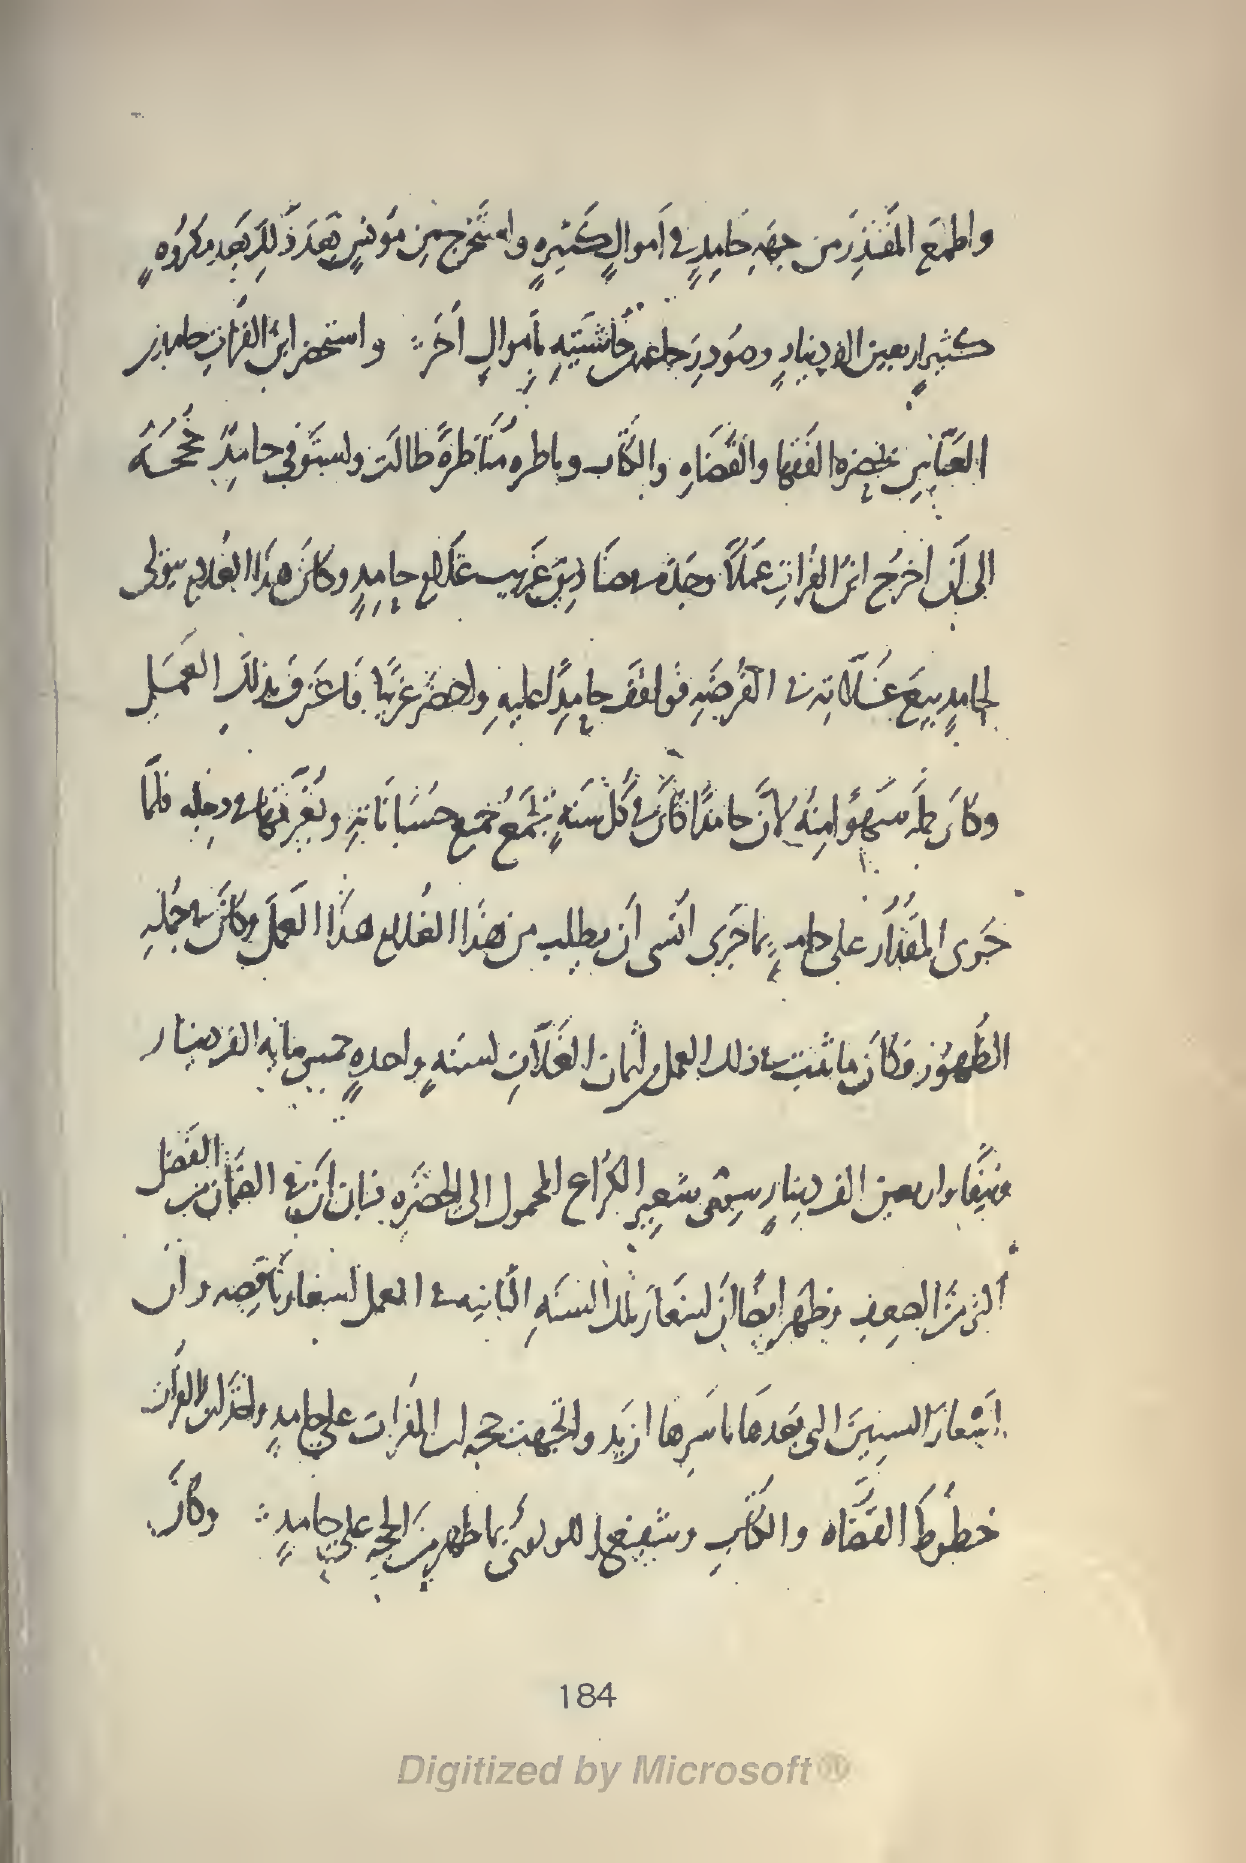 واطمع المقتدر من جهه حامدٍ في اموالٍ كثيرهٍ واستخرج من مونسٍ بعد ذلك بعد مكروهٍ
كثيرٍ اربعين الف دينارٍ وصودر جماعه من حاشيته باموالٍ اخر ∴ واستحضر ابن الفرات حامد بن
العباس بحضره الفقها والقضاه والكتاب وناظره مناظرةً طالت واستوفى حامدٌ حججه
الى ان اخرج ابن الفرات عملاً وجده صناديق غريب غلام حامدٍ وكان هذا الغلام يتولى
لحامدٍ بيع غلاته في الفرضه فواقف حامداً عليه واحضر غريباً فاعترف بذلك العمل
وكان سهواً منه لان حامداً كان في كل سنهٍ يجمع جميع حسباناته ويغرقها في دجله فلما
جرى المقدار على حامدٍ بما جرى انسى ان يطلب من هذا الغلام هذا العمل وكان في جمله
الظهور فكان ما ثبت في ذلك العمل من اثمان الغلات لسنهٍ واحدهٍ خمس مايه الف دينار
ونيفا واربعين الف دينارٍ سوى شعير الكراع المحمول الى الحضره فبان ان في الضمان من الفضل
اكثر من الضعف وظهر ايضا ان اسعار تلك السنه الثانيه في العمل اسعار ناقصه وان
اسعار السنين التي بعدها باسرها ازيد واتجهت حجه ابن الفرات على حامدٍ واخذ ابن الفرات
خطوط القضاه والكتاب بما ظهر من الحجه على حامدٍ ∴ وكان
184
Digitized by Microsoft ®